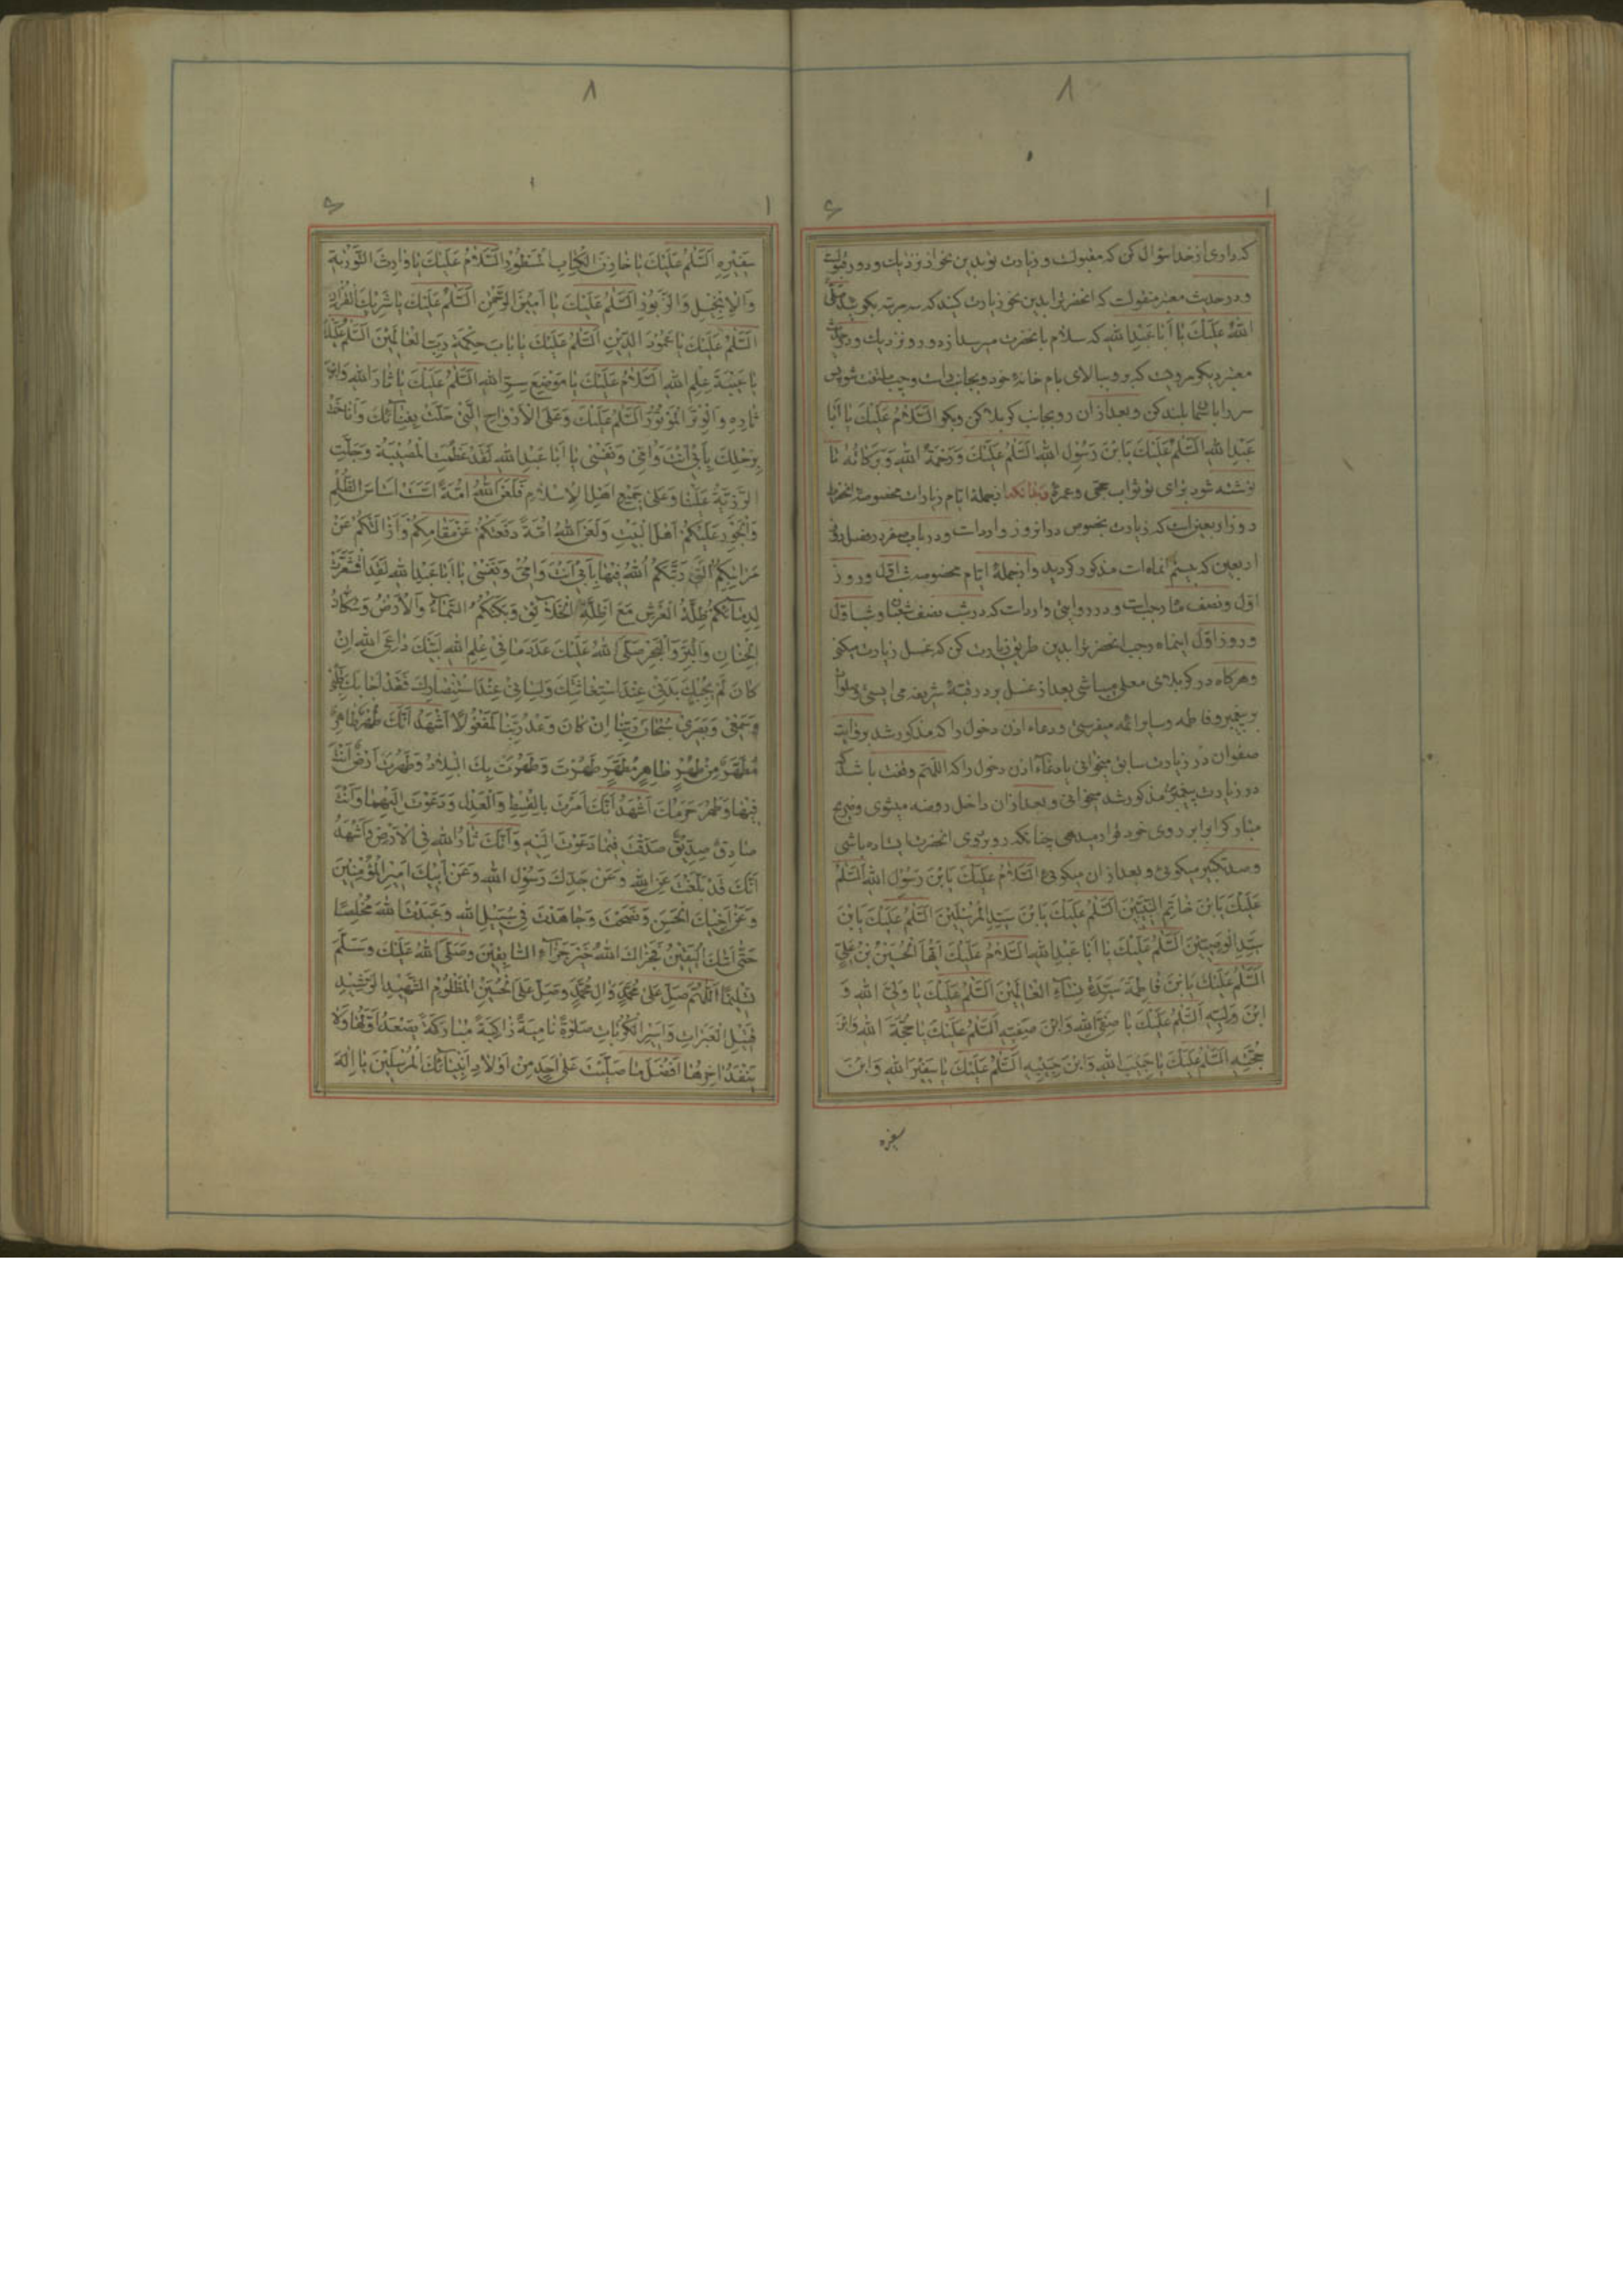 ۸
۱
۶
که داری از خدا سؤال کن که مقبولست و زیارت تو بدین نحو از نزدیك و دور مقبول
و در حدیث معتبر منقولست که انحضرترا بدین نحو زیارت کنید که سه مرتبه بگوید صلی
اللهُ عَلَیْكَ یا أَبا عَبْدِ اللهِ که سلام بانحضرت میرسد از دور و نزدیك و در حدیث
معتبر دیگر مرویست که برو ببالای بام خانهٔ خود و بجانب راست و چپ ملتفت شو پس
سر را باسما بلند کن و بعد از ان رو بجانب کربلا کن و بگو اَلسَّلامُ عَلَیْكَ یا أَبا
عَبْدِ اللهِ اَلسَّلٰمُ عَلَیْكَ یَا بْنَ رَسُولِ اللهِ اَلسَّلٰمُ عَلَیْكَ وَ رَحْمَةُ اللهِ وَ بَرَکاتُهُ تا
نوشته شود برای تو ثواب حجّی و عمرهٔ از جملهٔ ایام زیارات مخصوصهٔ انحضرت
روز اربعین است که زیارت بخصوص در انروز وارد است و در باب صفر در فضل
اربعین که بیستم انماه است مذکور کردید و از جملهٔ ایام مخصوصه شب اوّل و روز
اوّل و نصف ماه رجب است و در روایتی وارد است که در شب نصف شعبان و شب اوّل
و روز اوّل اینماه رجب انحضرترا بدین طریق زیارت کن که غسل زیارت میکنی
و هرکاه در کربلای معلی میباشی بعد از غسل بر در قبّهٔ شریفه می ایستی و صلوات
بر پیغمبر و فاطمه و سایر ائمه میفرستی و دعاء اذن دخول را که مذکور شد بروایت
صفوان در زیارت سابق میخوانی یا دعاء اذن دخول را که اللّهم وقفت باشد که
در زیارت پیغمبر مذکور شد میخوانی و بعد از ان داخل روضه میشوی و ضریح
مبارکرا برابر روی خود قرار میدهی چنانکه رو بروی انحضرت ایستاده باشی
و صد تکبیر میکوئی و بعد از ان میکوئی اَلسَّلامُ عَلَیْكَ یَا بْنَ رَسُولِ اللهِ اَلسَّلٰمُ
عَلَیْكَ یَا بْنَ خاتَمِ النَّبِیّینَ اَلسَّلٰمُ عَلَیْكَ یَا بْنَ سَیِّدِ الْمُرْسَلینَ اَلسَّلٰمُ عَلَیْكَ یَا بْنَ
سَیِّدِ الْوَصِیّینَ اَلسَّلٰمُ عَلَیْكَ یا أَبا عَبْدِ اللهِ اَلسَّلامُ عَلَیْكَ أَیُّهَا الْحُسَیْنُ بْنُ عَلِیٍّ
اَلسَّلٰمُ عَلَیْكَ یَا بْنَ فاطِمَةَ سَیِّدَةِ نِساءِ الْعالَمینَ اَلسَّلٰمُ عَلَیْكَ یا وَلِیَّ اللهِ وَ
ابْنَ وَلِیِّهِ اَلسَّلٰمُ عَلَیْكَ یا صَفِیَّ اللهِ وَابْنَ صَفِیِّهِ اَلسَّلٰمُ عَلَیْكَ یا حُجَّةَ اللهِ وَابْنَ
حُجَّتِهِ اَلسَّلٰمُ عَلَیْكَ یا حَبیبَ اللهِ وَابْنَ حَبیبِهِ اَلسَّلٰمُ عَلَیْكَ یا سَفیرَ اللهِ وَابْنَ
سفیره
۸
۱
۶
سَفیرِهِ اَلسَّلٰمُ عَلَیْكَ یا خازِنَ الْکِتابِ الْمَسْطُورِ اَلسَّلامُ عَلَیْكَ یا وارِثَ التَّوْرٰیةِ
وَالْاِنْجیلِ وَالزَّبُورِ اَلسَّلٰمُ عَلَیْكَ یا اَمینَ الرَّحْمٰنِ اَلسَّلٰمُ عَلَیْكَ یا شَریكَ الْقُرْانِ
اَلسَّلٰمُ عَلَیْكَ یا عَمُودَ الدّینِ اَلسَّلٰمُ عَلَیْكَ یا بابَ حِکْمَةِ رَبِّ الْعالَمینَ اَلسَّلٰمُ عَلَیْكَ
یا عَیْبَةَ عِلْمِ اللهِ اَلسَّلامُ عَلَیْكَ یا مَوْضِعَ سِرِّ اللهِ اَلسَّلٰمُ عَلَیْكَ یا ثارَ اللهِ وَابْنَ
ثارِهِ وَالْوِتْرَ الْمَوْتُورَ اَلسَّلٰمُ عَلَیْكَ وَعَلَی الْاَرْواحِ الَّتی حَلَّتْ بِفِنائِكَ وَاَناخَتْ
بِرَحْلِكَ بِاَبی اَنْتَ وَاُمّی وَنَفْسی یا اَبا عَبْدِ اللهِ لَقَدْ عَظُمَتِ الْمُصیبَةُ وَجَلَّتِ
الرَّزِیَّةُ عَلَیْنا وَعَلی جَمیعِ اَهْلِ الْاِسْلامِ فَلَعَنَ اللهُ اُمَّةً اَسَّسَتْ اَساسَ الظُّلْمِ
وَالْجَوْرِ عَلَیْکُمْ اَهْلَ الْبَیْتِ وَلَعَنَ اللهُ اُمَّةً دَفَعَتْکُمْ عَنْ مَقامِکُمْ وَاَزالَتْکُمْ عَنْ
مَراتِبِکُمُ الَّتی رَتَّبَکُمُ اللهُ فیها بِاَبی اَنْتَ وَاُمّی وَنَفْسی یا اَبا عَبْدِ اللهِ لَقَدِ اقْشَعَرَّتْ
لِدِمائِکُمْ ظِلَّةُ الْعَرْشِ مَعَ اَظِلَّةِ الْخَلائِقِ وَبَکَتْکُمُ السَّماءُ وَالْاَرْضُ وَسُکّانُ
الْجِنانِ وَالْبَرِّ وَالْبَحْرِ صَلَّی اللهُ عَلَیْكَ عَدَدَ ما فی عِلْمِ اللهِ لَبَّیْكَ داعِیَ اللهِ اِنْ
کانَ لَمْ یُجِبْكَ بَدَنی عِنْدَ اسْتِغاثَتِكَ وَلِسانی عِنْدَ اسْتِنْصارِكَ فَقَدْ اَجابَكَ قَلْبی
وَسَمْعی وَبَصَری سُبْحانَ رَبِّنا اِنْ کانَ وَعْدُ رَبِّنا لَمَفْعُولًا اَشْهَدُ اَنَّكَ طُهْرٌ طاهِرٌ
مُطَهَّرٌ مِنْ طُهْرٍ طاهِرٍ مُطَهَّرٍ طَهُرْتَ وَطَهُرَتْ بِكَ الْبِلادُ وَطَهُرَتْ اَرْضٌ اَنْتَ
فیها وَطَهُرَ حَرَمُكَ اَشْهَدُ اَنَّكَ اَمَرْتَ بِالْقِسْطِ وَالْعَدْلِ وَدَعَوْتَ اِلَیْهِما وَاَنَّكَ
صادِقٌ صِدّیقٌ صَدَقْتَ فیما دَعَوْتَ اِلَیْهِ وَاَنَّكَ ثارُ اللهِ فِی الْاَرْضِ وَاَشْهَدُ
اَنَّكَ قَدْ بَلَّغْتَ عَنِ اللهِ وَعَنْ جَدِّكَ رَسُولِ اللهِ وَعَنْ اَبیكَ اَمیرِ الْمُؤْمِنینَ
وَعَنْ اَخیكَ الْحَسَنِ وَنَصَحْتَ وَجاهَدْتَ فی سَبیلِ اللهِ وَعَبَدْتَ اللهَ مُخْلِصًا
حَتّی اَتٰیكَ الْیَقینُ فَجَزاكَ اللهُ خَیْرَ جَزاءِ السّابِقینَ وَصَلَّی اللهُ عَلَیْكَ وَسَلَّمَ
تَسْلیمًا اَللّٰهُمَّ صَلِّ عَلی مُحَمَّدٍ وَالِ مُحَمَّدٍ وَصَلِّ عَلَی الْحُسَیْنِ الْمَظْلُومِ الشَّهیدِ الرَّشیدِ
قَتیلِ الْعَبَراتِ وَاَسیرِ الْکُرُباتِ صَلٰوةً نامِیَةً زاکِیَةً مُبارَکَةً یَصْعَدُ اَوَّلُها وَلا
یَنْفَدُ اخِرُها اَفْضَلَ ما صَلَّیْتَ عَلی اَحَدٍ مِنْ اَوْلادِ اَنْبِیائِكَ الْمُرْسَلینَ یا اِلٰهَ